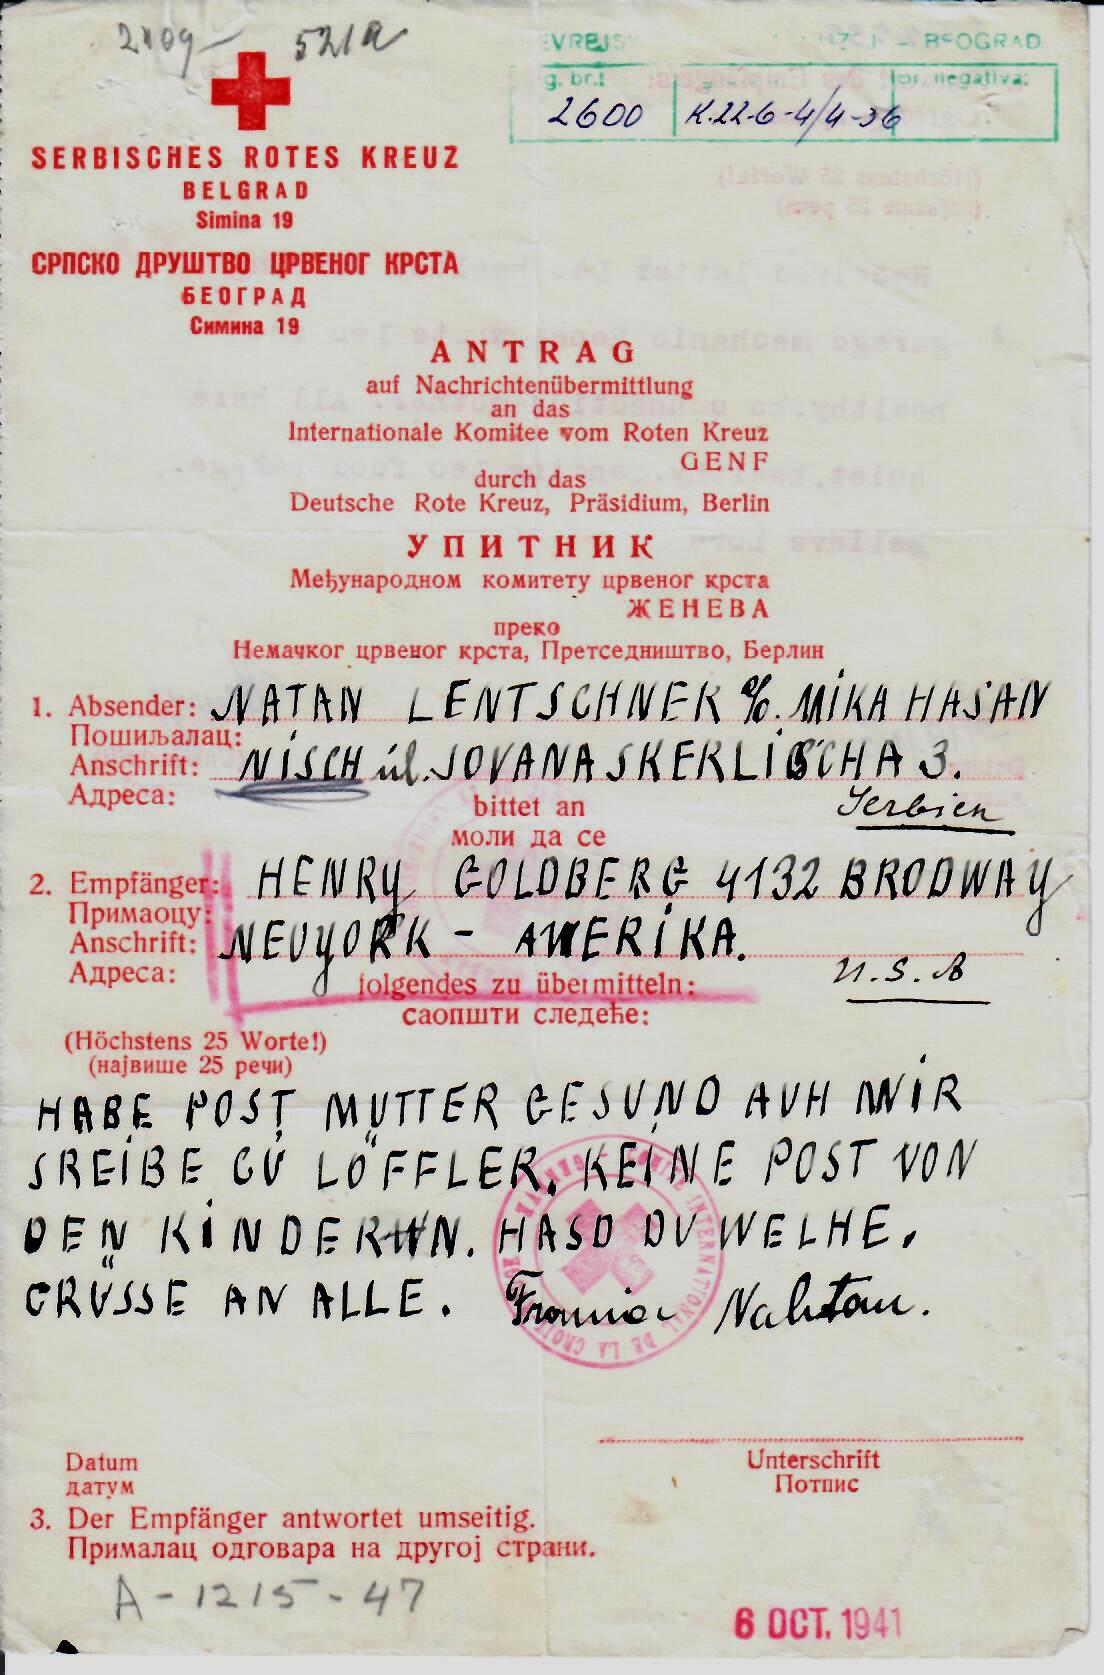 2409 — 521a
EVREJS — BEOGRAD
g. br.: negativa:
2600 K.22-6-4/4-36
SERBISCHES ROTES KREUZ
BELGRAD
Simina 19
СРПСКО ДРУШТВО ЦРВЕНОГ КРСТА
БЕОГРАД
Симина 19
ANTRAG
auf Nachrichtenübermittlung
an das
Internationale Komitee vom Roten Kreuz
GENF
durch das
Deutsche Rote Kreuz, Präsidium, Berlin
УПИТНИК
Међународном комитету црвеног крста
ЖЕНЕВА
преко
Немачког црвеног крста, Претседништво, Берлин
1. Absender: NATAN LENTSCHNER c/o. MIKA HASAN
Пошиљалац:
Anschrift: NISCH ul. JOVANA SKERLIBCHA 3.
Адреса:
bittet an Serbien
моли да се
2. Empfänger: HENRY GOLDBERG 4132 BRODWAY
Примаоцу:
Anschrift: NEUYORK - AMERIKA.
Адреса: U.S.A
folgendes zu übermitteln:
саопшти следеће:
(Höchstens 25 Worte!)
(највише 25 речи)
HABE POST MUTTER GESUND AUH MIR
SREIBE GÜ LÖFFLER. KEINE POST VON
DEN KINDERN. HASD DU WELHE.
GRÜSSE AN ALLE. Nahtan.
Datum
датум
Unterschrift
Потпис
3. Der Empfänger antwortet umseitig.
Прималац одговара на другој страни.
A-1215-47
6 OCT. 1941